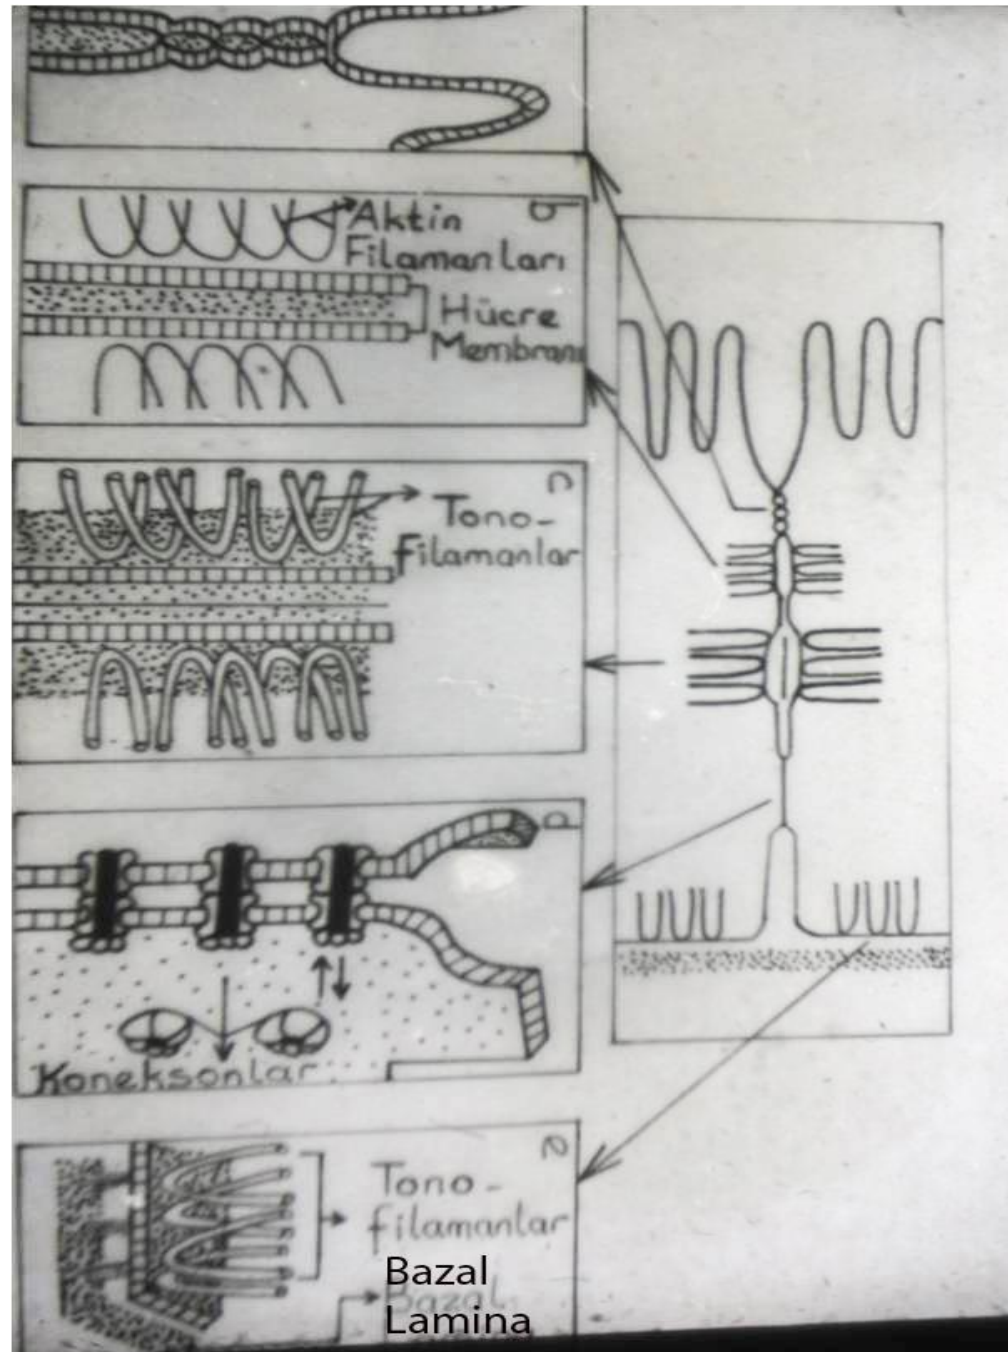 b
Aktin
Filamanları
Hücre
Membranı
c
Tono-
Filamanlar
Koneksonlar
e
Tono-
filamanlar
Bazal
Bazal
Lamina